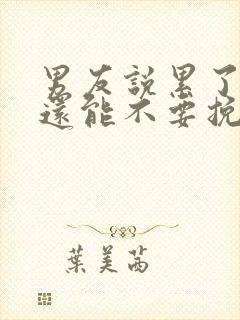 男友說累了
還能不要挽
葉美茜